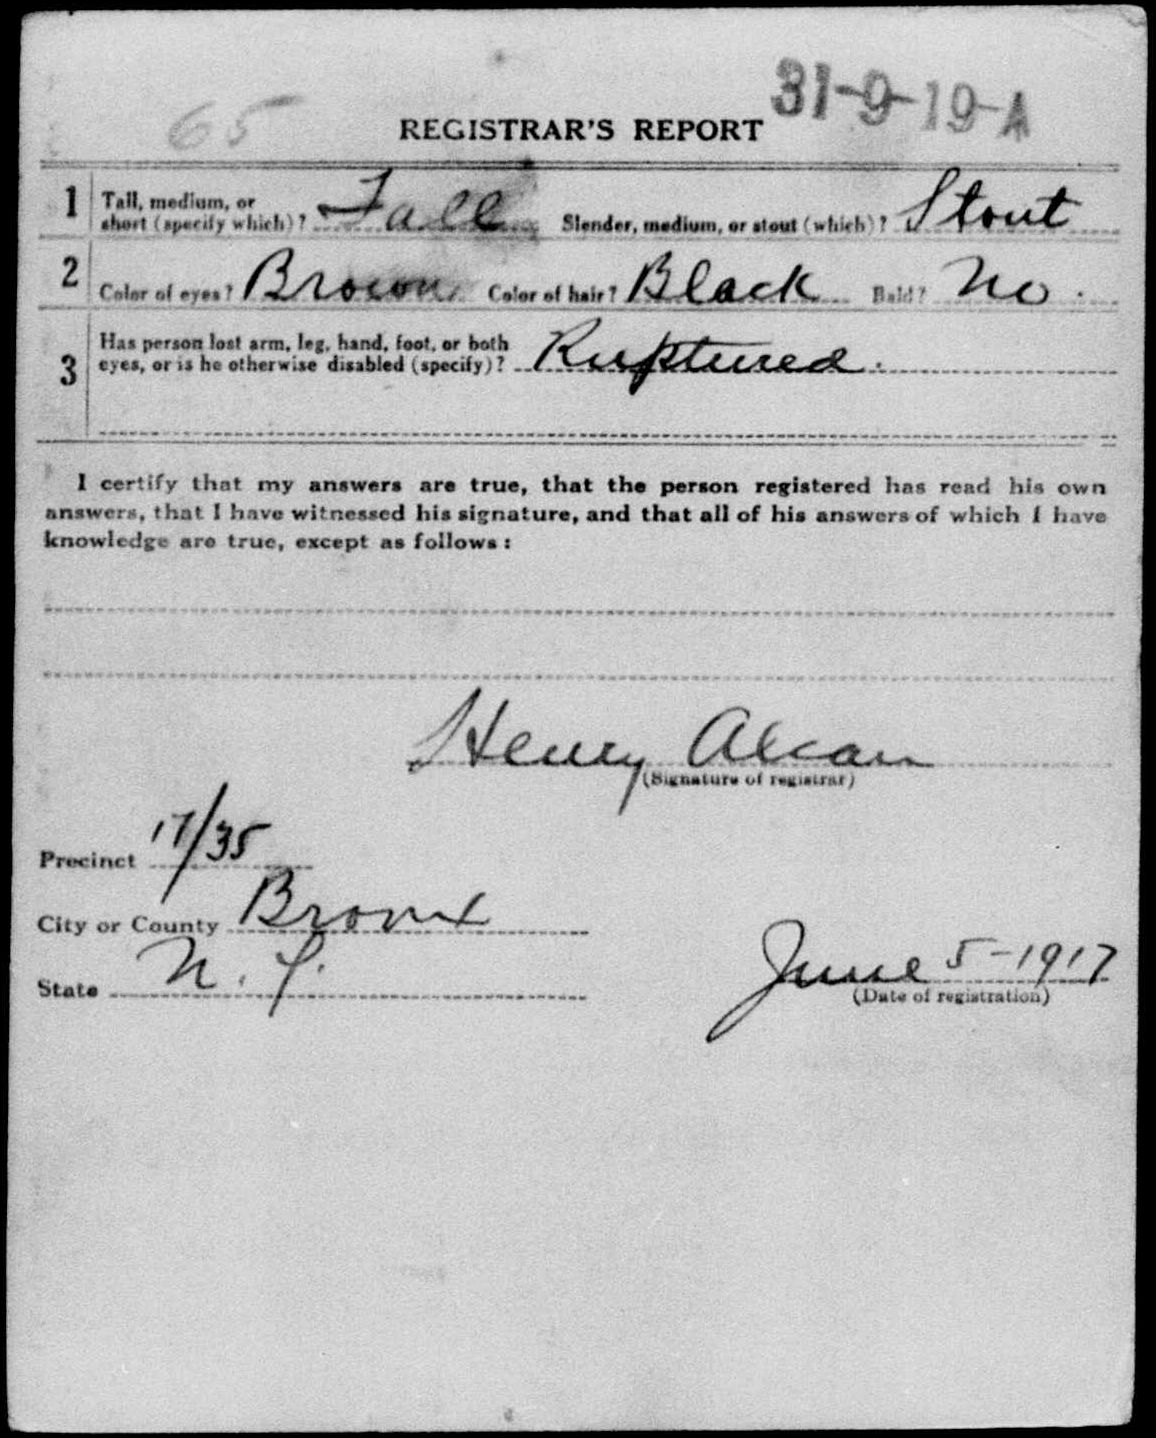 65
31-9-19-A
REGISTRAR'S REPORT
1 Tall, medium, or short (specify which)? Tall Slender, medium, or stout (which)? Stout
2 Color of eyes? Brown Color of hair? Black Bald? No.
3 Has person lost arm, leg, hand, foot, or both
eyes, or is he otherwise disabled (specify)? Ruptured.
I certify that my answers are true, that the person registered has read his own
answers, that I have witnessed his signature, and that all of his answers of which I have
knowledge are true, except as follows:
Henry Alcan
(Signature of registrar)
Precinct 17/35
City or County Bronx
State N. Y.
June 5-1917
(Date of registration)